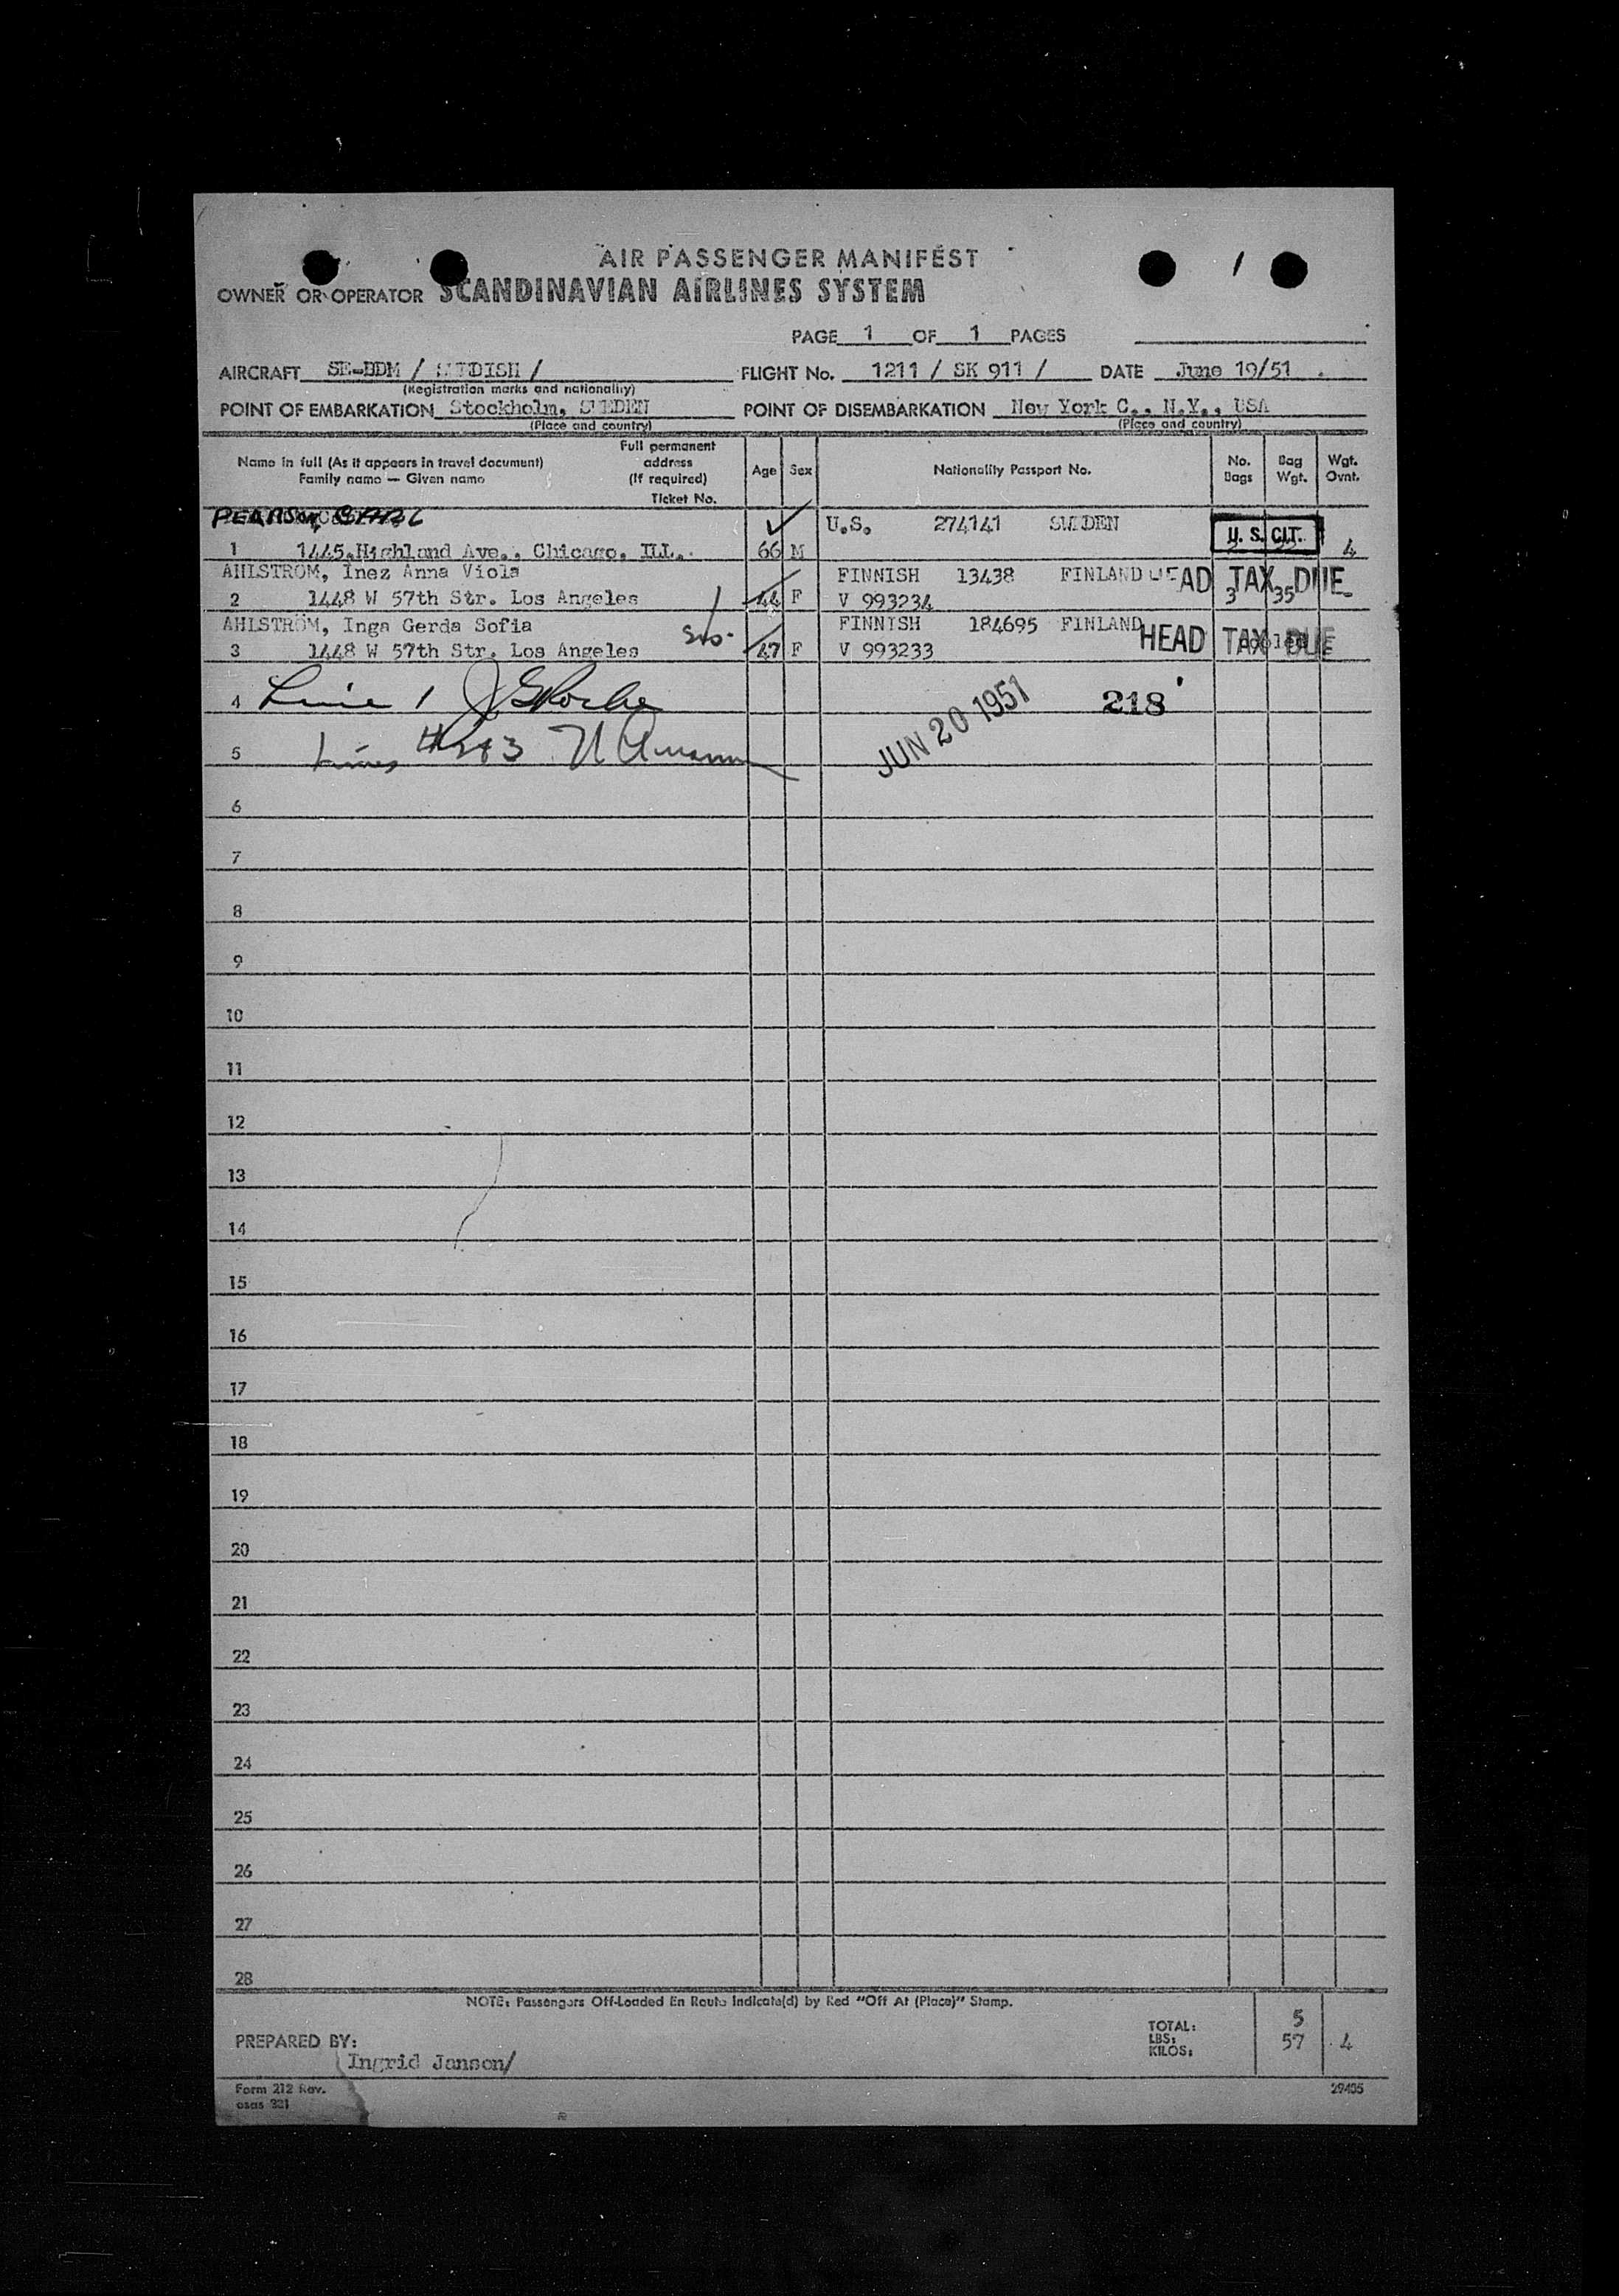 AIR PASSENGER MANIFEST
1
OWNER OR OPERATOR SCANDINAVIAN AIRLINES SYSTEM
PAGE 1 OF 1 PAGES
AIRCRAFT SE-BDM / SWEDISH / FLIGHT No. 1211 / SK 911 / DATE June 19/51 .
(Registration marks and nationality)
POINT OF EMBARKATION Stockholm, SWEDEN POINT OF DISEMBARKATION New York C., N.Y., USA
(Place and country) (Place and country)
Name in full (As it appears in travel document) Family name — Given name
Full permanent address (If required) Ticket No.
Age Sex Nationality Passport No. No. Bags Bag Wgt. Wgt. Ovnt.
PEARSON, CARL U.S. 274141 SWEDEN U. S. CIT.
1 1445 Highland Ave., Chicago, ILL. 66 M 4
AHLSTRÖM, Inez Anna Viola FINNISH 13438 FINLAND HEAD TAX DUE
2 1448 W 57th Str. Los Angeles 44 F V 993234 3 35 -
AHLSTRÖM, Inga Gerda Sofia FINNISH 184695 FINLAND HEAD TAX DUE
3 1448 W 57th Str. Los Angeles 47 F V 993233 pooled
4 Line 1 218
JUN 20 1951
5 Lines # 2 & 3
6
7
8
9
10
11
12
13
14
15
16
17
18
19
20
21
22
23
24
25
26
27
28
NOTE: Passengers Off-Loaded En Route Indicate(d) by Red "Off At (Place)" Stamp.
TOTAL: 5
LBS:
KILOS: 57 4
PREPARED BY:
Ingrid Janson/
Form 212 Rev.
osas 321
29405